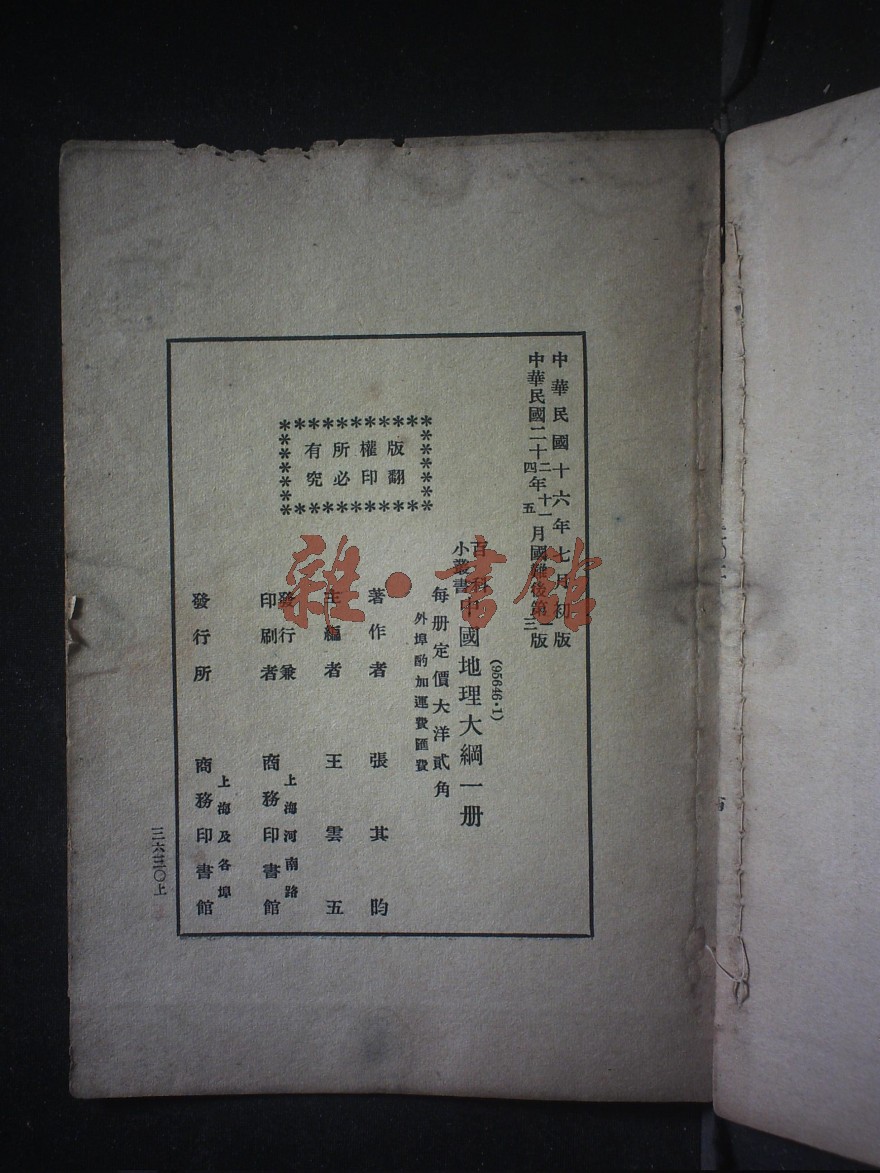 中華民國十六年七月初版
中華民國二十二四年十一五月國難後第一三版
(95646·1)
百科小叢書 中國地理大綱一册
每册定價大洋貳角
外埠酌加運費匯費
版權所有
翻印必究
著作者 張其昀
主編者 王雲五
發行兼印刷者 上海河南路 商務印書館
發行所 上海及各埠 商務印書館
三六三〇上
雜·書館